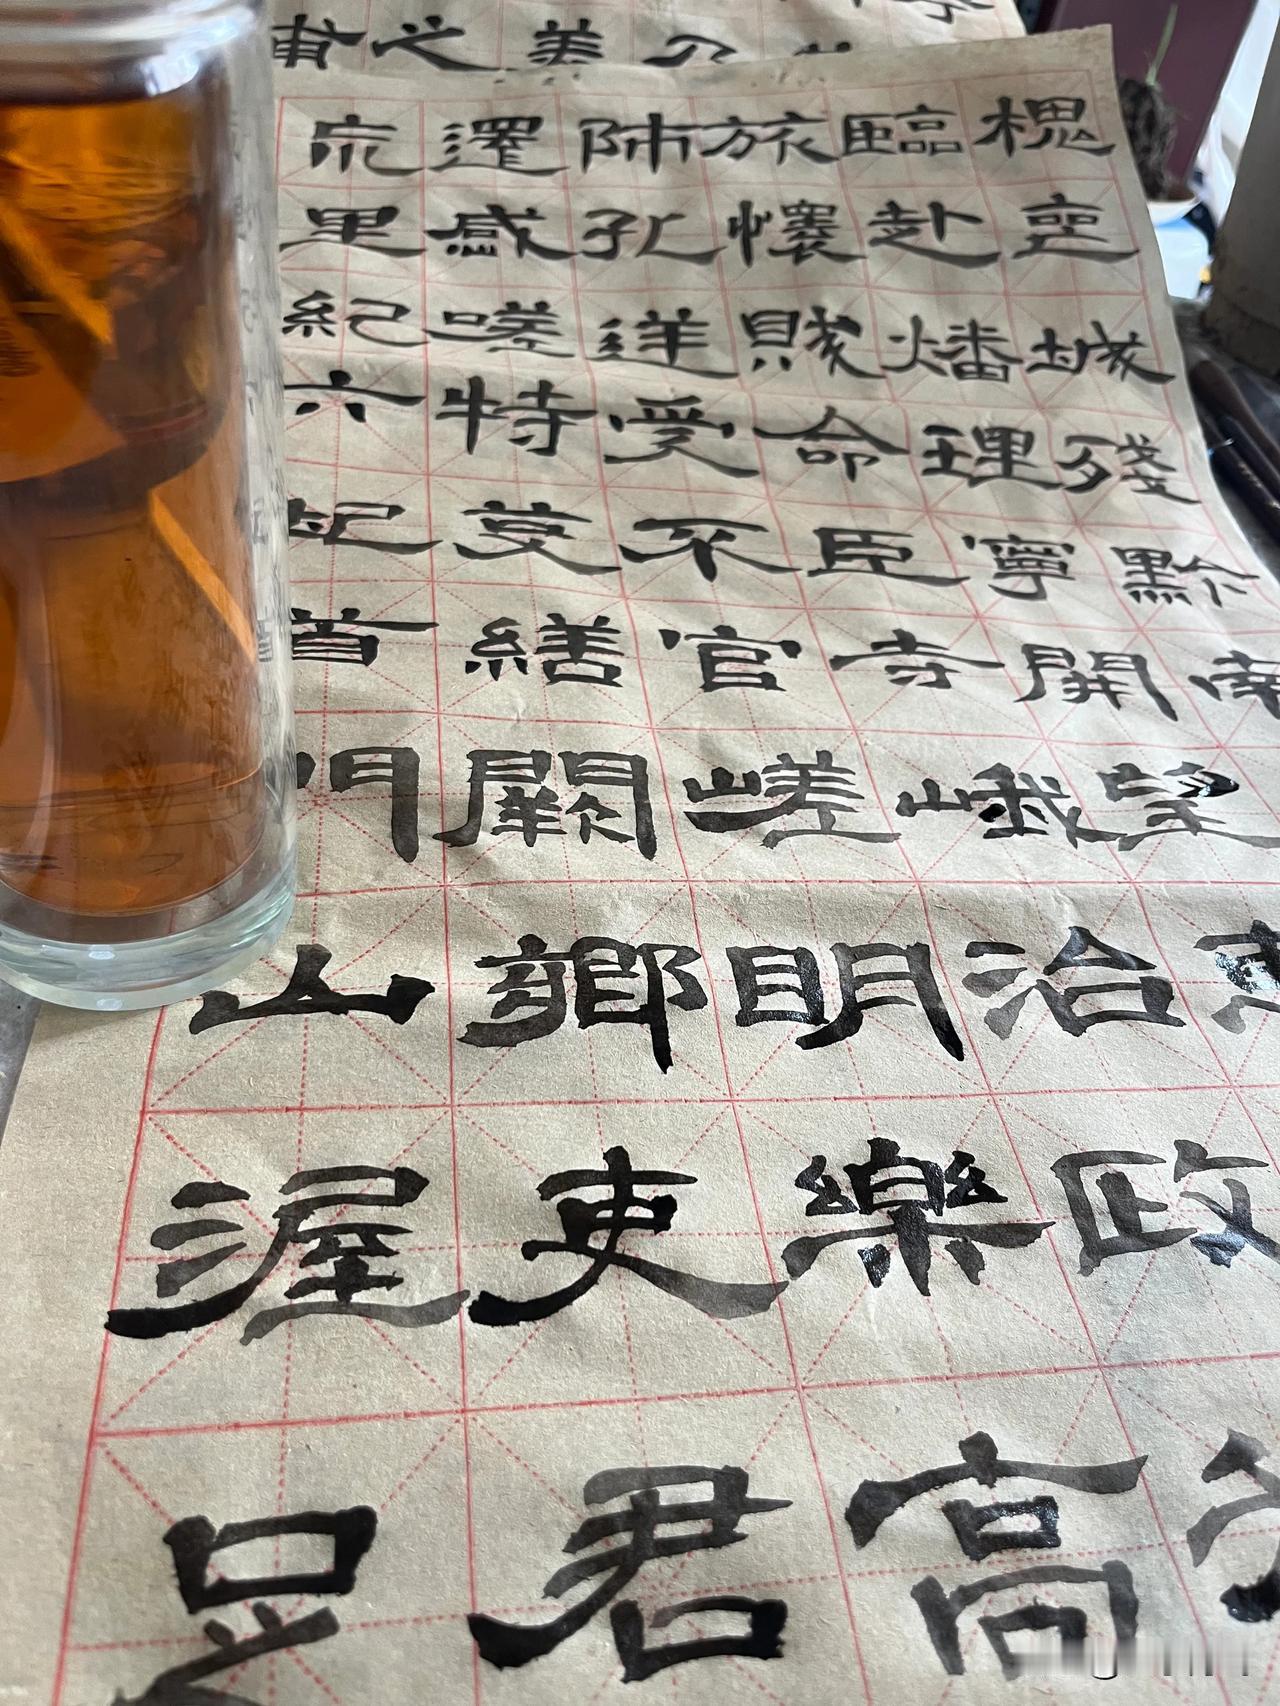 甫之美乃
荒還師旅臨槐
里感孔懷赴喪
紀嗟逆賊燔城
特受命理殘
圮芟不臣寧黔
首繕官寺開南
門闕嵯峨望
山鄉明治惠
渥吏樂政
足君高升